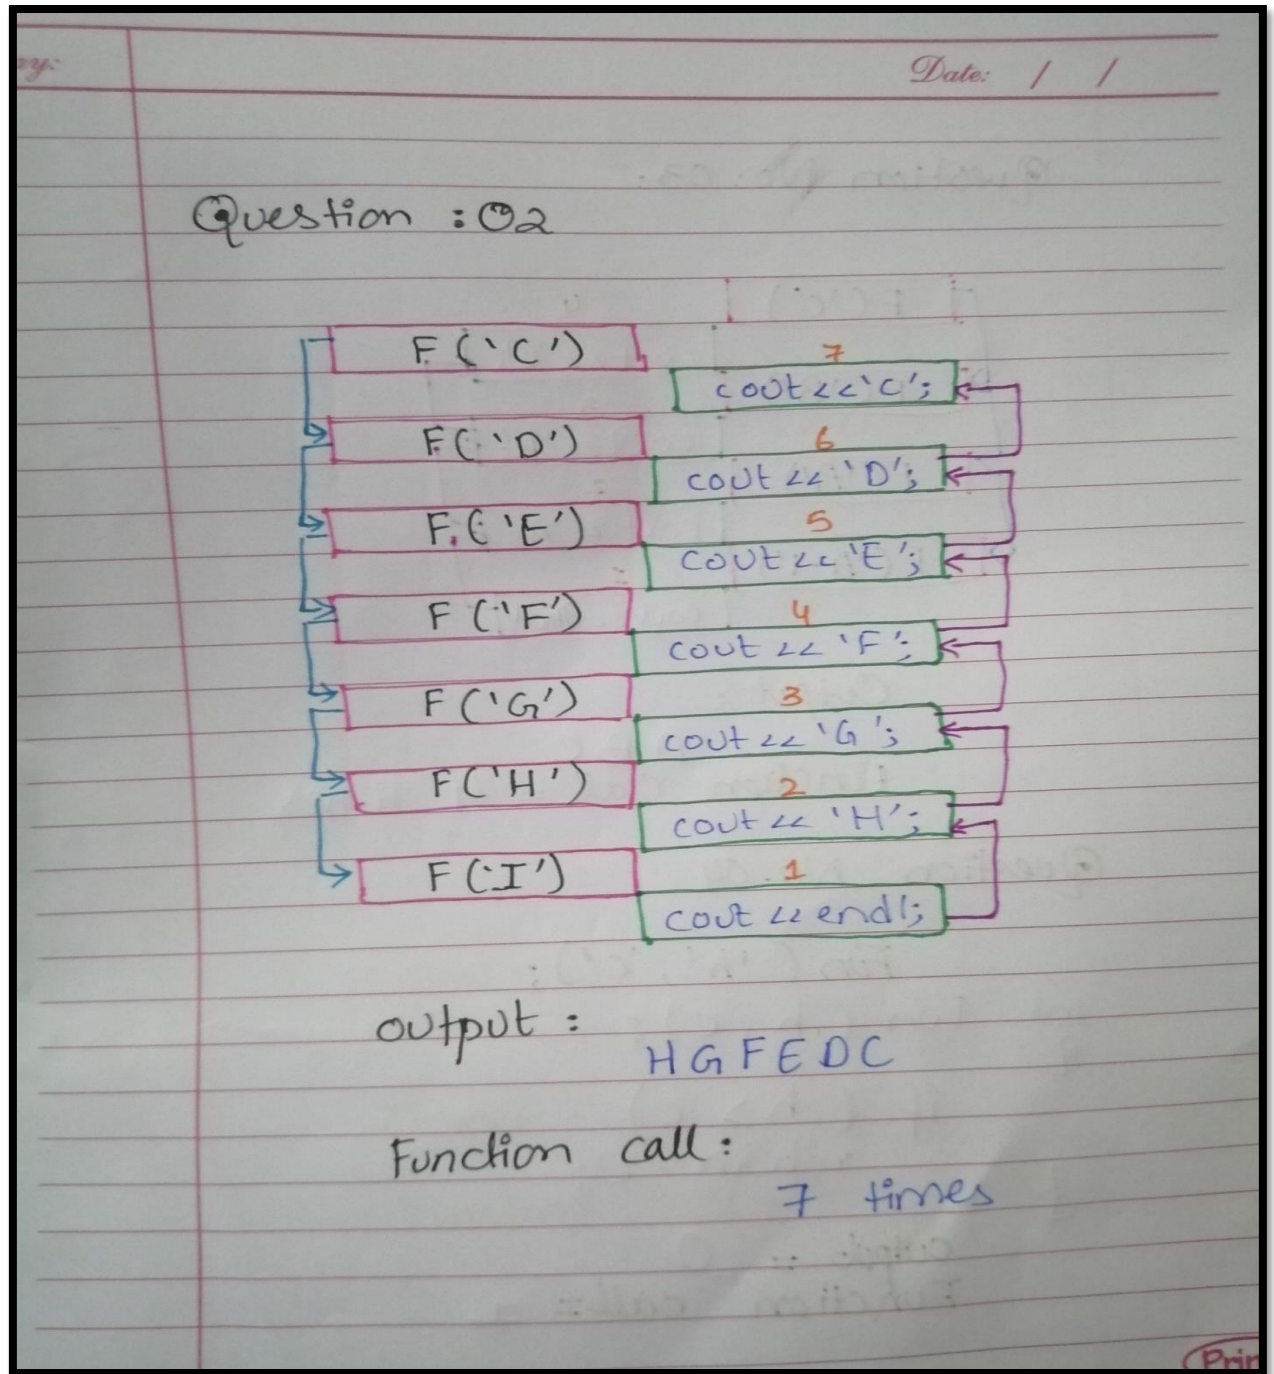 Date: / /
Question : 02
F ('C')
7
cout << 'C';
F ('D')
6
cout << 'D';
F ('E')
5
cout << 'E';
F ('F')
4
cout << 'F';
F ('G')
3
cout << 'G';
F ('H')
2
cout << 'H';
F ('I')
1
cout << endl;
output :
H G F E D C
Function call :
7 times